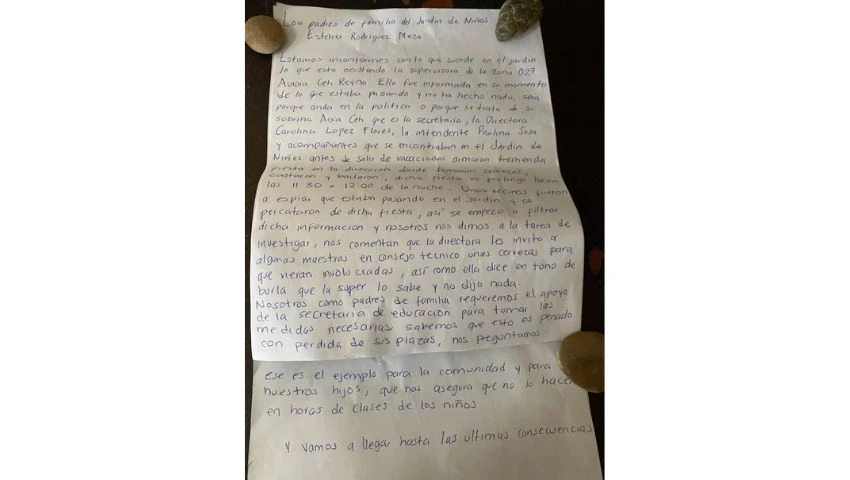 Los padres de familia del Jardin de Niños
Esther Rodriguez Meza
Estamos inconformes con lo que sucede en el jardin
lo que esta ocultando la supervisora de la zona 027
Aurora Ceh Reyna Ella fue informada en su momento
de lo que estaba pasando y no ha hecho nada, sera
porque anda en la politica o porque se trata de su
sobrina Aixa Ceh que es la secretaria, la Directora
Carolina Lopez Flores, la intendente Paulina Sosa
y acompañantes que se encontraban en el Jardin de
Niños antes de salir de vacaciones armaron tremenda
fiesta en la dirección donde tomaron cervezas,
cantaron y bailaron, dicha fiesta se prolongo hasta
las 11:30 o 12:00 de la noche. Unos vecinos fueron
a espiar que estaba pasando en el Jardin y se
percataron de dicha fiesta, así se empezo a filtrar
dicha informacion y nosotros nos dimos a la tarea de
investigar, nos comentan que la directora les invito a
algunas maestras en consejo tecnico unas cervezas para
que vieran involucradas, así como ella dice en tono de
burla que la super lo sabe y no dijo nada.
Nosotros como padres de familia requeremos el apoyo
de la secretaria de educación para tomar las
medidas necesarias sabemos que esto es penado
con perdida de sus plazas, nos preguntamos
ese es el ejemplo para la comunidad y para
nuestros hijos, que nos asegura que no lo hacen
en horas de clases de los niños
Y vamos a llegar hasta las ultimas consecuencias